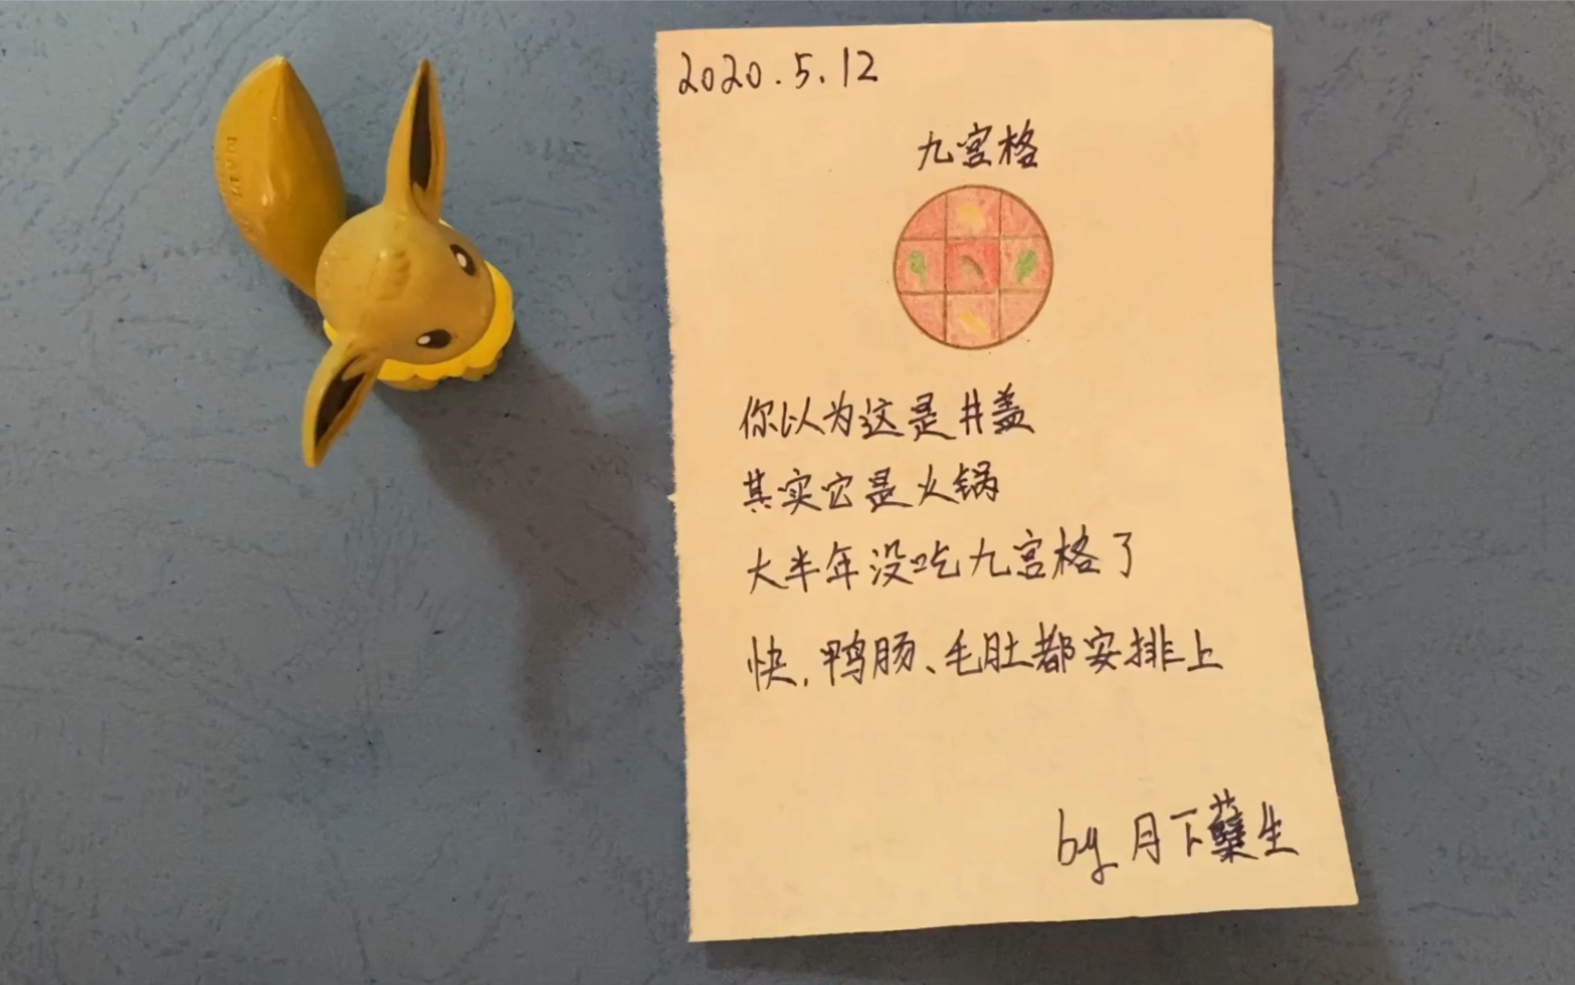 2020.5.12
九宫格
你以为这是井盖
其实它是火锅
大半年没吃九宫格了
快,鸭肠、毛肚都安排上
by 月下蘖生